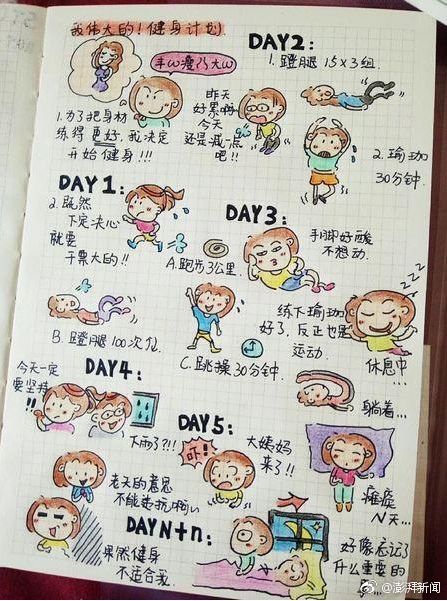 我伟大的!健身计划
丰ω瘦乃大ω
1.为了把身材
练得更好,我决定
开始健身!!!
DAY1:
2.既然
下定决心
就要
干票大的!!
A.跑步3公里.
B.蹬腿100次位
C.跳操30分钟.
DAY2:
1.蹬腿15×3组.
昨天
好累啊
今天
还是减一点
吧!!
2.瑜珈
30分钟.
DAY3:
手脚好酸
不想动.
练下瑜珈
好了,反正也是
运动.
zzz
休息中...
躺着...
DAY4:
今天一定
要坚持
!!
下雨了?!!
老天的意思
不能违抗啊
果然健身
不适合我.
DAY5:
吓!
大姨妈
来了!!
瘫痪
N天...
DAYN+n:
好像忘记了
什么重要的
@澎湃新闻